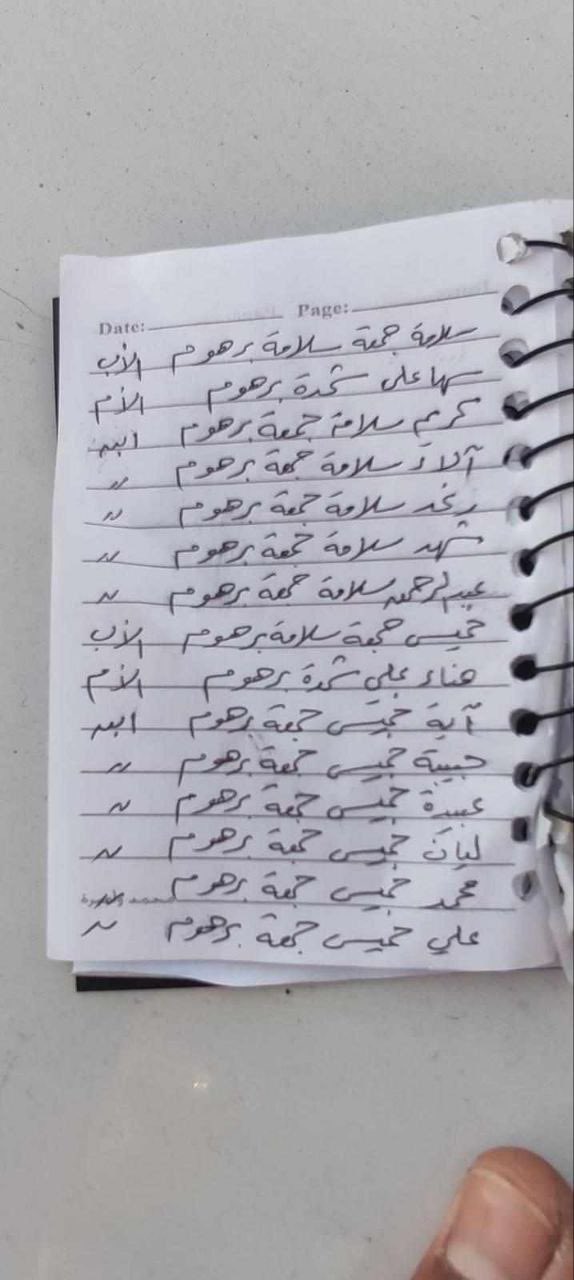 Date: Page:
سلامة جمعة سلامة برهوم الأب
سها على شحدة برهوم الأم
كرم سلامة جمعة برهوم ابن
آلاء سلامة جمعة برهوم 〃
رغد سلامة جمعة برهوم 〃
شهد سلامة جمعة برهوم 〃
عبدالرحمن سلامة جمعة برهوم 〃
خميس جمعة سلامة برهوم الأب
هناء علي شحدة برهوم الأم
آية خميس جمعة برهوم ابن
حبيبة خميس جمعة برهوم 〃
عبيدة خميس جمعة برهوم 〃
ليان خميس جمعة برهوم 〃
محمد خميس جمعة برهوم
علي خميس جمعة برهوم 〃